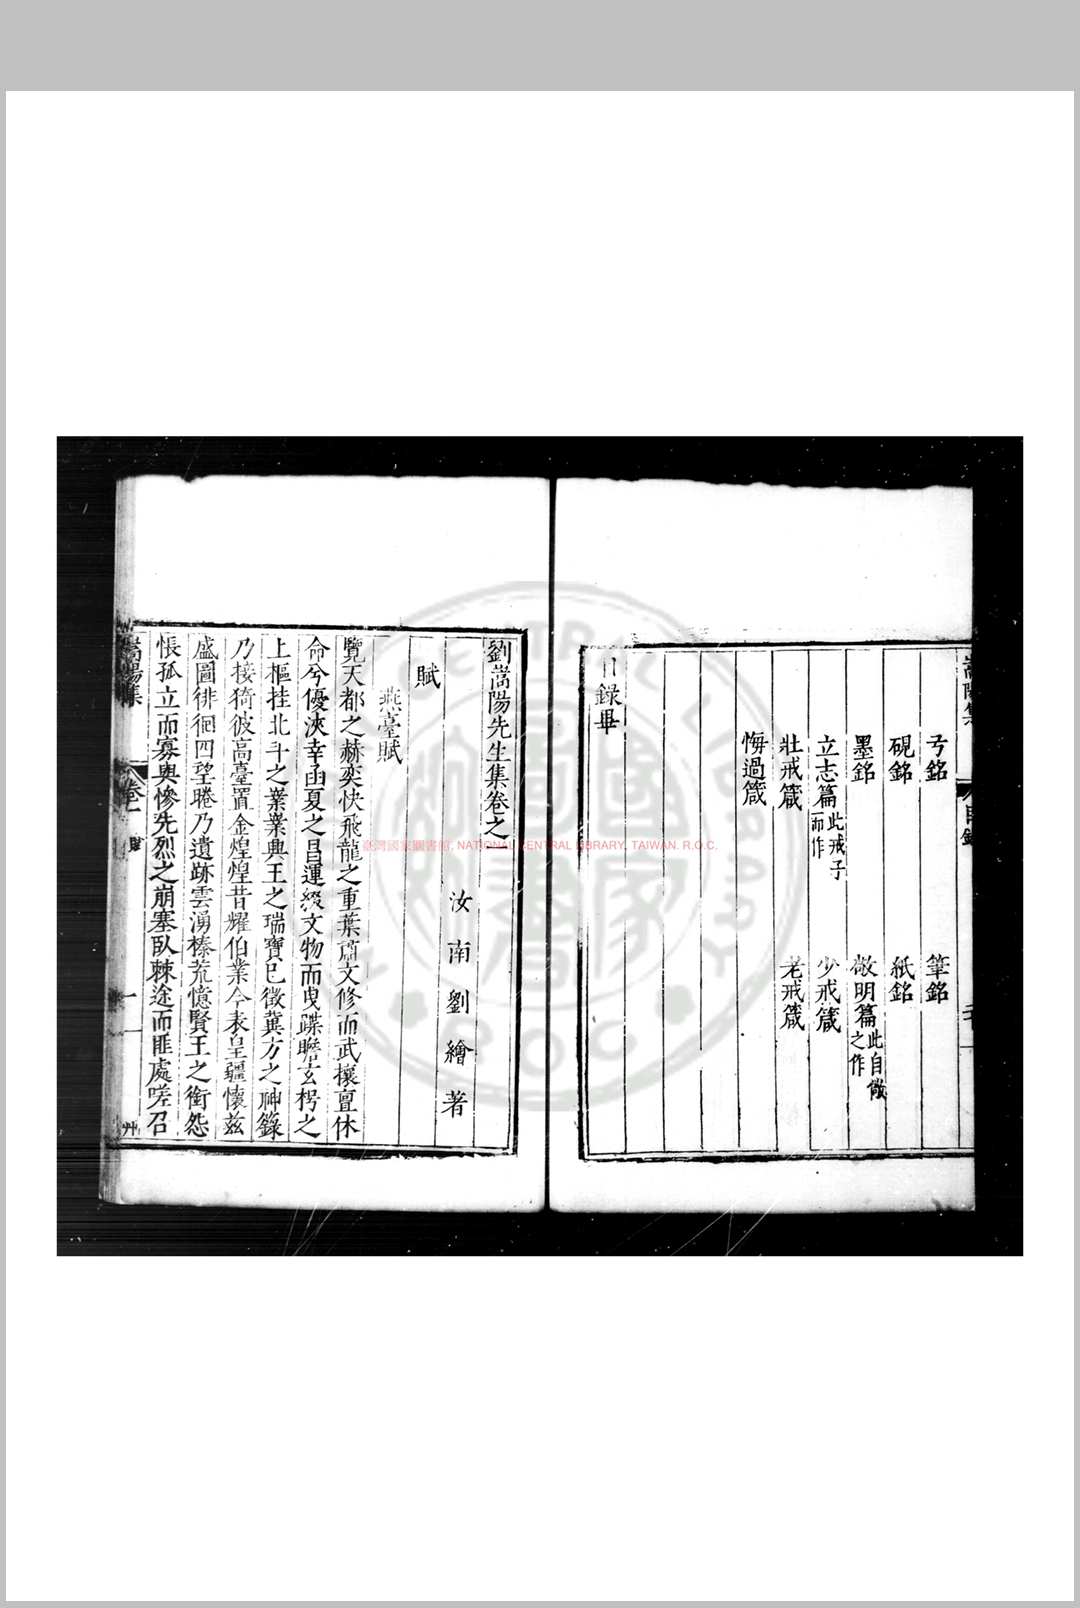 弓銘 筆銘
硯銘 紙銘
墨銘 敬明篇此自儆之作
立志篇此戒子而作 少戒箴
壯戒箴 老戒箴
悔過箴
目錄畢
劉嵩陽先生集卷之一
汝南劉繪著
賦
燕臺賦
覽天都之赫奕快飛龍之重葉肅文修而武攘亶休
命兮優浹幸函夏之昌運綴文物而曳蹀瞻玄枵之
上樞挂北斗之業業興王之瑞寶已徵冀方之神籙
乃接猗彼高臺置金煌煌昔耀伯業今表皇疆懷茲
盛圖徘徊四望睠乃遺跡雲湧榛荒憶賢王之銜怨
悵孤立而寡與慘先烈之崩塞臥棘途而匪處嗟召
嵩陽集 卷一 賦 一
臺灣國家圖書館, NATIONAL CENTRAL LIBRARY, TAIWAN. R.O.C.